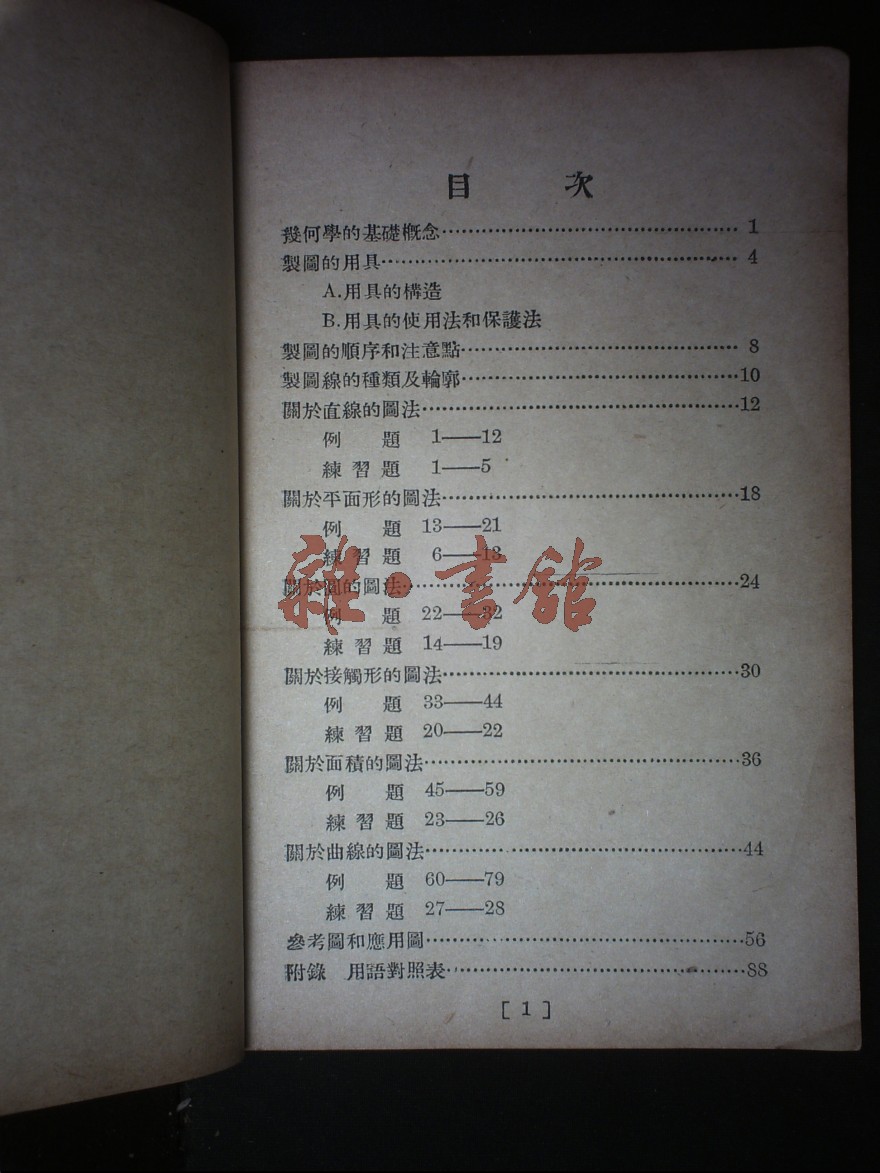 目　次
幾何學的基礎概念……………………………………1
製圖的用具……………………………………………4
A.用具的構造
B.用具的使用法和保護法
製圖的順序和注意點…………………………………8
製圖線的種類及輪廓…………………………………10
關於直線的圖法………………………………………12
例　題　1——12
練習題　1——5
關於平面形的圖法……………………………………18
例　題　13——21
練習題　6——13
關於圓的圖法…………………………………………24
例　題　22——32
練習題　14——19
關於接觸形的圖法……………………………………30
例　題　33——44
練習題　20——22
關於面積的圖法………………………………………36
例　題　45——59
練習題　23——26
關於曲線的圖法………………………………………44
例　題　60——79
練習題　27——28
參考圖和應用圖………………………………………56
附錄　用語對照表……………………………………88
[ 1 ]
雜·書館